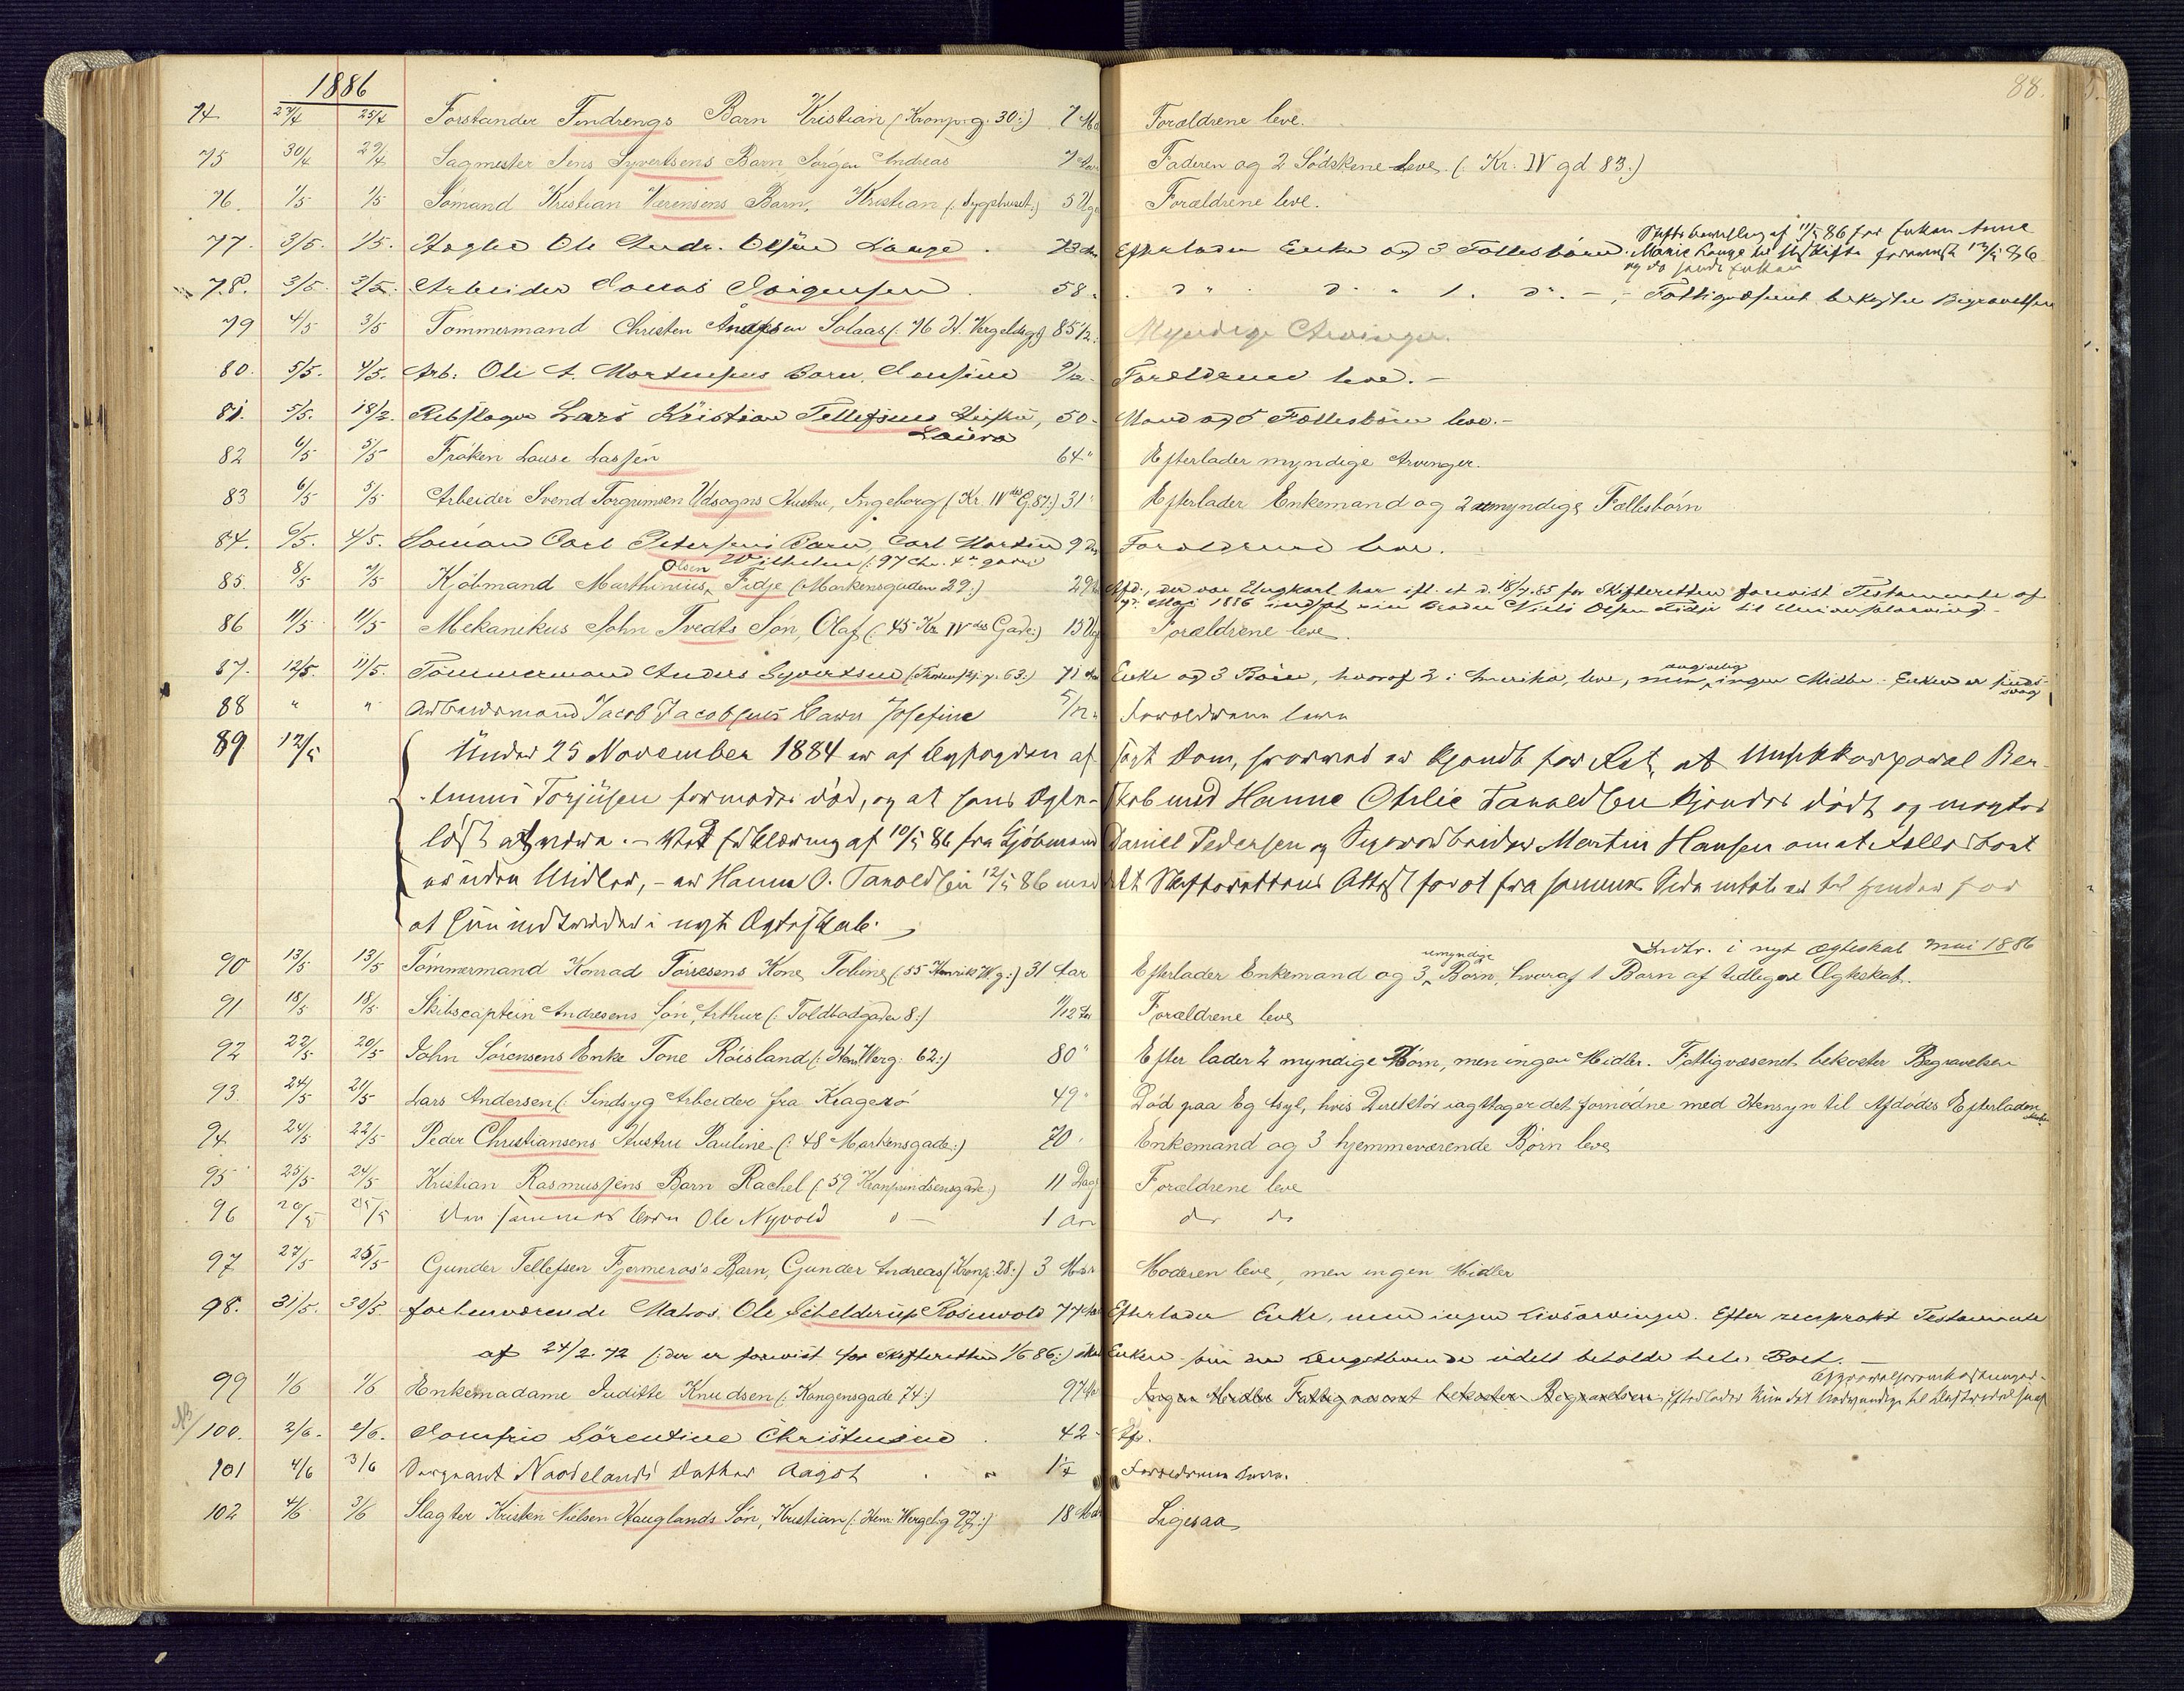 88.
1886
74. 27/4 25/4 Forstander Tindrengs Barn Kristian (Kronp. g. 30:) 7 Md Forældrene leve.
75 30/4 29/4 Sagmester Jens Syvertsens Barn Jørgen Andreas 7 Faderen og 2 Södskene leve. (: Kr. IV gd 83.)
76. 1/5 1/5 Sömand Kristian Værensens Barn, Kristian (: Sygehuset:) 5 Uger Forældrene leve.
Skiftebevilling af 11/5 86 for Enken Anne
77. 3/5. 1/5. Ole Andr. Olsen Lange. 73 Efterlader Enke og 3 Fællesbörn. Marie Lange til Skifte forevist 12/5 86
78. 3/5. 3/5. Arbeider Jonas Jörgensen 58. d. 1. d. – Fattigvæsenet bekoster Begravelsen
79 4/5 3/5 Tömmermand Christen Solaas (: 76 H. Vergeldsg:) 85 1/2 Myndige Arvinger.
80. 5/5. 4/5. Arb: Ole A. Mortensens Barn, 9/12 Forældrene leve. –
81. 5/5. 18/2. Rebslager Lars Kristian Tellefsens Hustru, 50 Mand og 5 Fællesbörn leve. –
Laura
82 6/5 5/5 Fröken Louse Lassen 64" Efterlader myndige Arvinger.
83 6/5 5/5 Arbeider Svend Torgrimsen Udsogns Hustru, Ingeborg (Kr. IV des G. 87:) 31" Efterlader Enkemand og 2 umyndige Fællesbörn
84. 6/5. 4/5. Sömand Carl Petersens Barn Carl Martin 9 Forældrene leve.
Wilhelm (: 97 Chr. 4des gade)
85. 8/5 7/5 Kjöbmand Marthinius Olsen Fidje (Markensgaden 29:) 29 Afd., der var Ungkarl har ifl. et d. 18/7. 85 for Skifteretten forevist Testamente af
Mai 1886 indsat sin Broder Niels Olsen Fidje til Universalarving.
86 11/5 11/5 Mekanikus John Tvedts Sön, Olaf (: 45 Kr. IV des Gade:) 15 Forældrene leve.
87. 12/5. 11/5. Tömmermand Anders Syvertsen 71 Enke og 3 Börn, hvoraf 2 i Amerika, leve, men angivelig ingen Midler. Enken er sindssvag
88 " " Arbeidsmand Jacob Jacobsens Barn Josefine 5/12 Forældrene leve
89 12/5 Under 25 November 1884 er af Byfogden afsagt Dom, hvorved er kjendt for Ret, at Musikkorporal Ber-
-tinius Torjüsen formodes död, og at hans Ægteskab med Hanne Otilie Tanoldsen kjendes dödt og magtes-
löst at være. – Ved Erklæring af 10/5 86 fra Kjöbmand Daniel Pedersen og Daniel Martin Hansen om at Fællesboet
er uden Midler, – er Hanne O. Tanoldsen 12/5 86 meddelt Skifterettens Attest for at fra sammes Side intet er til Hinder for
at hun indtræder i nyt Ægteskab.
Indtr. i nyt Ægteskab mai 1886
90 13/5 13/5 Tömmermand Konrad Törresens Kone, Toline (: 55 Henrik W. g.:) 31 Aar Efterlader Enkemand og 3 umyndige Börn, hvoraf 1 Barn af tidligere Ægteskab.
91 18/5 18/5 Skibscaptein Andresens Sön, Arthur (: Toldbodgaden 8:) 11/12 Forældrene leve
92 22/5 20/5 John Sörensens Enke Tone Röisland (: Hen. Werg. 62:) 80" Efterlader 2 myndige Börn, men ingen Midler. Fattigvæsenet bekoster Begravelsen
93. 24/5 21/5 Lars Andersen (: Sindsyg Arbeider fra Kragerö 49" Död paa Eg Asyl, hvis Direktör iagttager det fornödne med Hensyn til Afdödes Efterladenskaber
94 24/5 22/5 Peder Christiansens Hustru Pauline (: 48 Markensgade:) 70. Enkemand og 3 hjemmeværende Börn leve
95 25/5 24/5 Kristian Rasmussens Barn Rachel (: 59 Kronprindsensgade:) 11 Dage Forældrene leve
96 26/5 25/5 Ole Nyvold 1 Aar do do
97 27/5 25/5 Gunder Tellefsen Fjermeros's Barn, Gunder Andreas (: Kronp. 28:) 3 Moderen leve, men ingen Midler
98. 31/5. 30/5. forhenværende Matros Ole Schelderup Rosenvold 77 Efterlader Enke, men ingen Livsarvinger. Efter reciprokt Testamente
af 24/2. 72 (: der er forevist for Skifteretten 1/6 86:) skal Enken som den Længstlevende udelt beholde hele Boet. –
99 1/6 1/6 Enkemadame Juditte Knudsen (: Kongensgade 74:) 97 Ingen Midler Fattigvæsenet bekoster Begravelsen. Efterlader kun det Nödvendige til
NB/ 100. 2/6. 2/6. Jomfru Sörentine Christensen 42
101 4/6 3/6 Sergeant Naadelands Datter Aagot 1 Forældrene leve.
102 4/6 3/6 Slagter Kristen Nielsen Hauglands Sön, Kristian (: Henr. Wergelg 97:) 18 Ligesaa